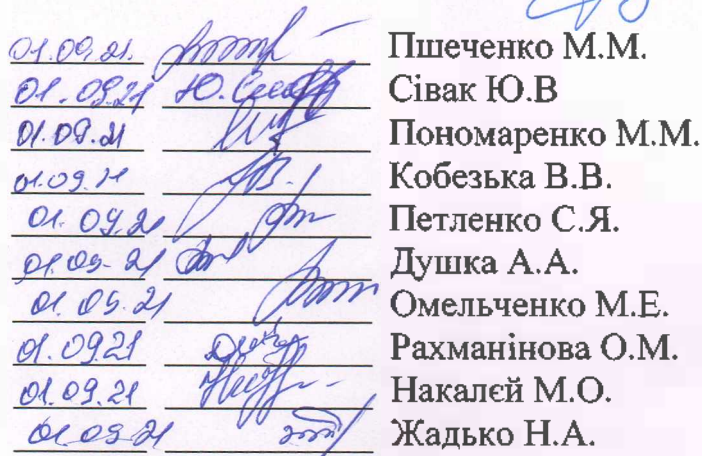 01.09.21. Пшеченко М.М.
01.09.21 Ю.Сивак Сівак Ю.В
01.09.21 Пономаренко М.М.
01.09.21 Кобезька В.В.
01.09.21 Петленко С.Я.
01.09.21 Душка А.А.
01.09.21 Омельченко М.Е.
01.09.21 Рахманінова О.М.
01.09.21 Накалєй М.О.
01.09.21 Жадько Н.А.